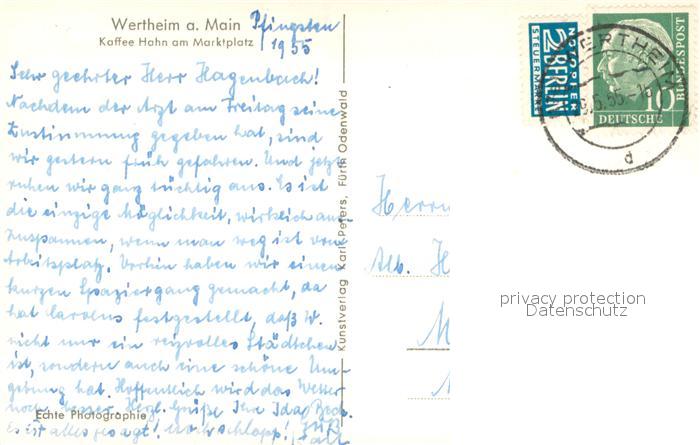 Wertheim a. Main Pfingsten
Kaffee Hahn am Marktplatz 1955
Sehr geehrter Herr Hagenbach!
Nachdem der Arzt am Freitag seine
Zustimmung gegeben hat, sind
wir gestern früh gefahren. Und jetzt
ruhen wir ganz tüchtig aus. Es ist
die einzige Möglichkeit, wirklich aus-
zuspannen, wenn man weg ist vom
Arbeitsplatz. Vorhin haben wir einen
kurzen Spaziergang gemacht, da
hat festgestellt, daß W.
nicht nur ein reizvolles Städtchen
ist, sondern auch eine schöne Um-
gebung hat. Hoffentlich wird das Wetter
noch besser. Herzl. Grüße Ihre Ida
Echte Photographie
Es ist alles gesagt! noch schlapp!
Kunstverlag Karl Peters, Fürth Odenwald
NOTOPFER
2 BERLIN
STEUERMARKE
WERTHEIM
d
10
DEUTSCHE
BUNDESPOST
Herrn
Alb. H
M
privacy protection
Datenschutz